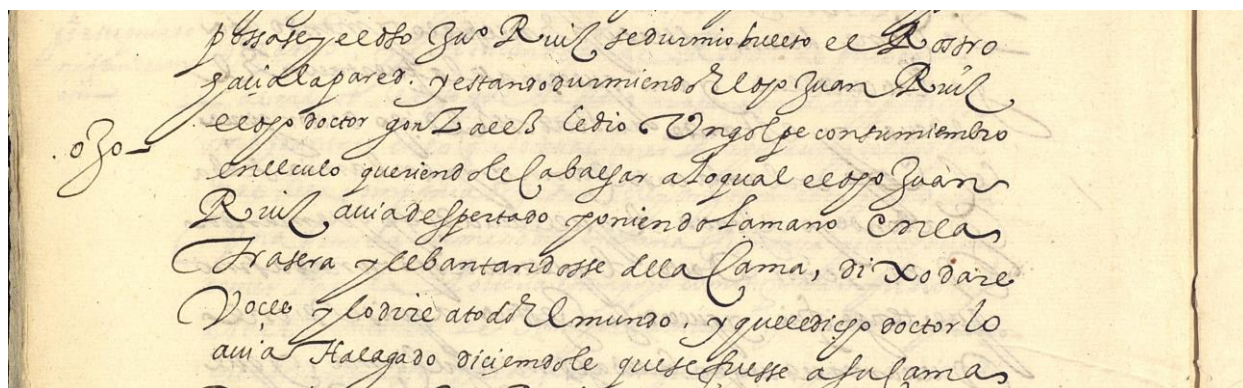 passase y el dho Juº Ruiz se durmio buelto el Rostro
haçia la pared. y estando durmiendo el dho Juan Ruiz
el dho doctor gonzales le dio Un golpe con su miembro
ojo
en el culo queriendole Cabalgar a lo qual el dho Juan
Ruiz avia despertado poniendo la mano en la
trasera y lebantandosse de la Cama, dixo dare
Voces y lo dire a todo el mundo, y que el dicho doctor lo
avia Halagado diciendole que se fuesse a su Cama